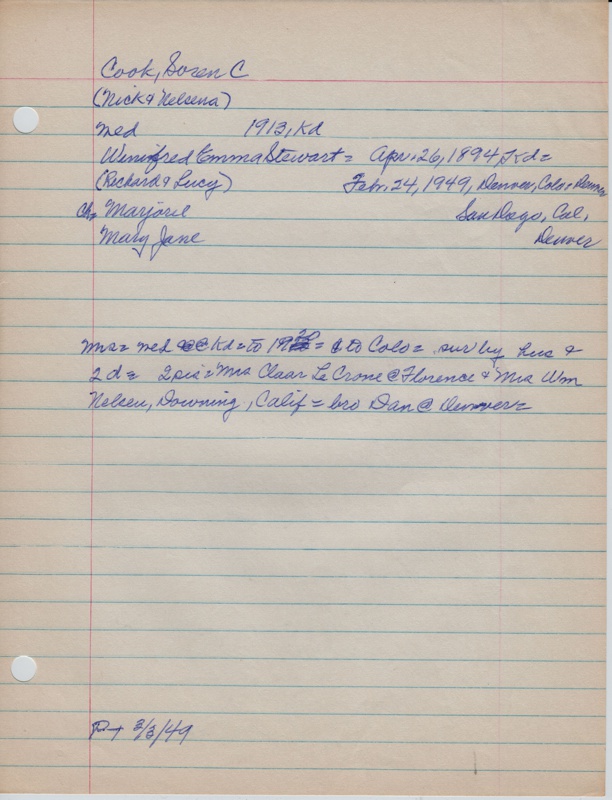 Cook, Soren C
(Nick & Nelsena)
med 1913, Kd
Winifred Emma Stewart = Apr. 26, 1894, Kd =
(Richard & Lucy) Feb. 24, 1949, Denver, Colo = Denver
ch = Marjorie San Dago, Cal,
Mary Jane Denver
Mrs = med @ Kd = to = to Colo = sur by hus &
2 d = 2 sis = Mrs Claar Le Crone @ Florence & Mrs Wm
Nelsen, Downing, Calif = bro Dan @ Denver =
P+ 3/3/49